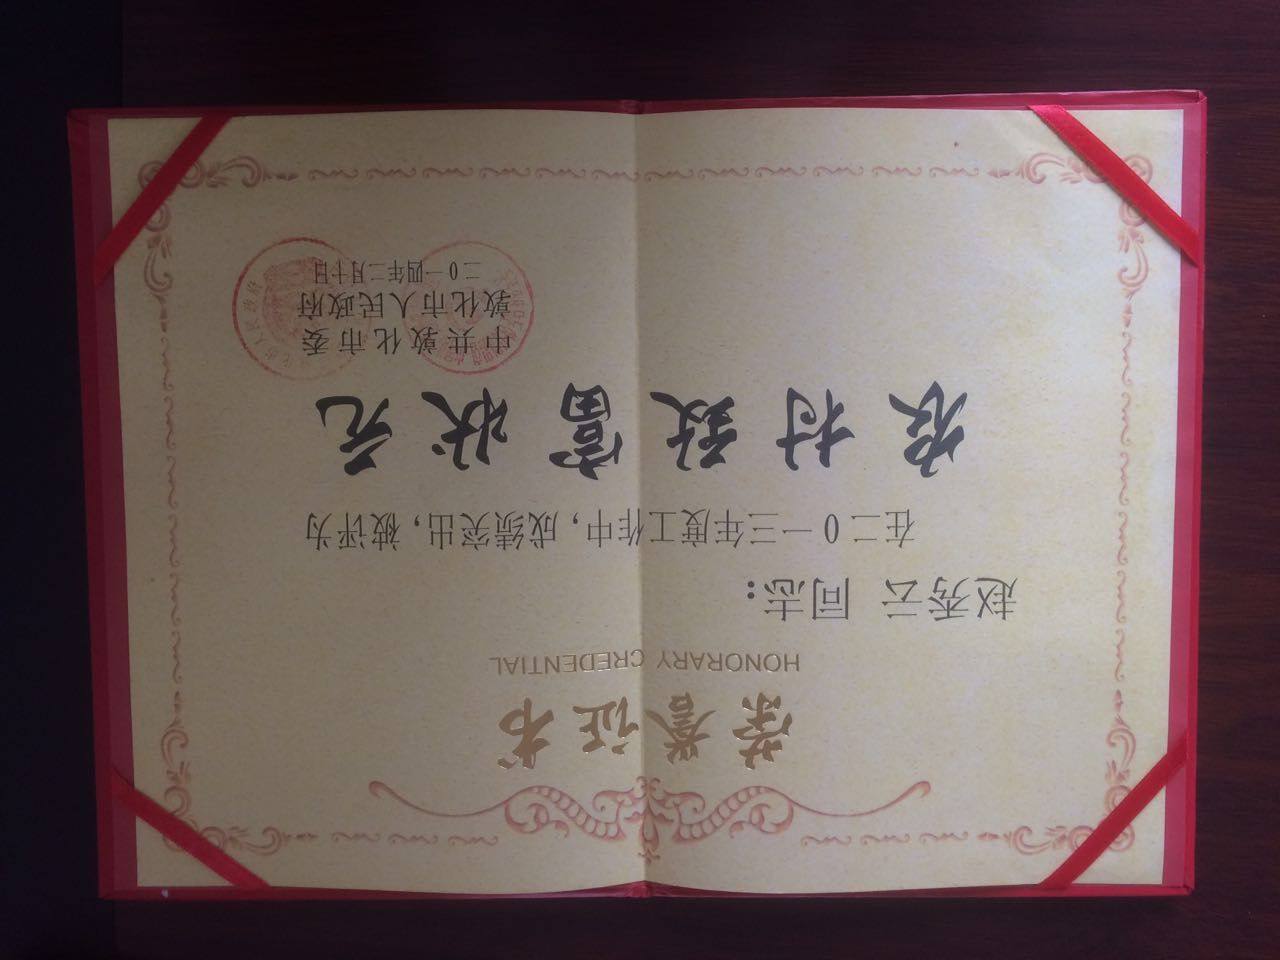 荣誉证书
HONORARY CREDENTIAL
赵秀云 同志：
在二0一三年度工作中，成绩突出，被评为
农村致富状元
中共敦化市委
敦化市人民政府
二0一四年二月十日